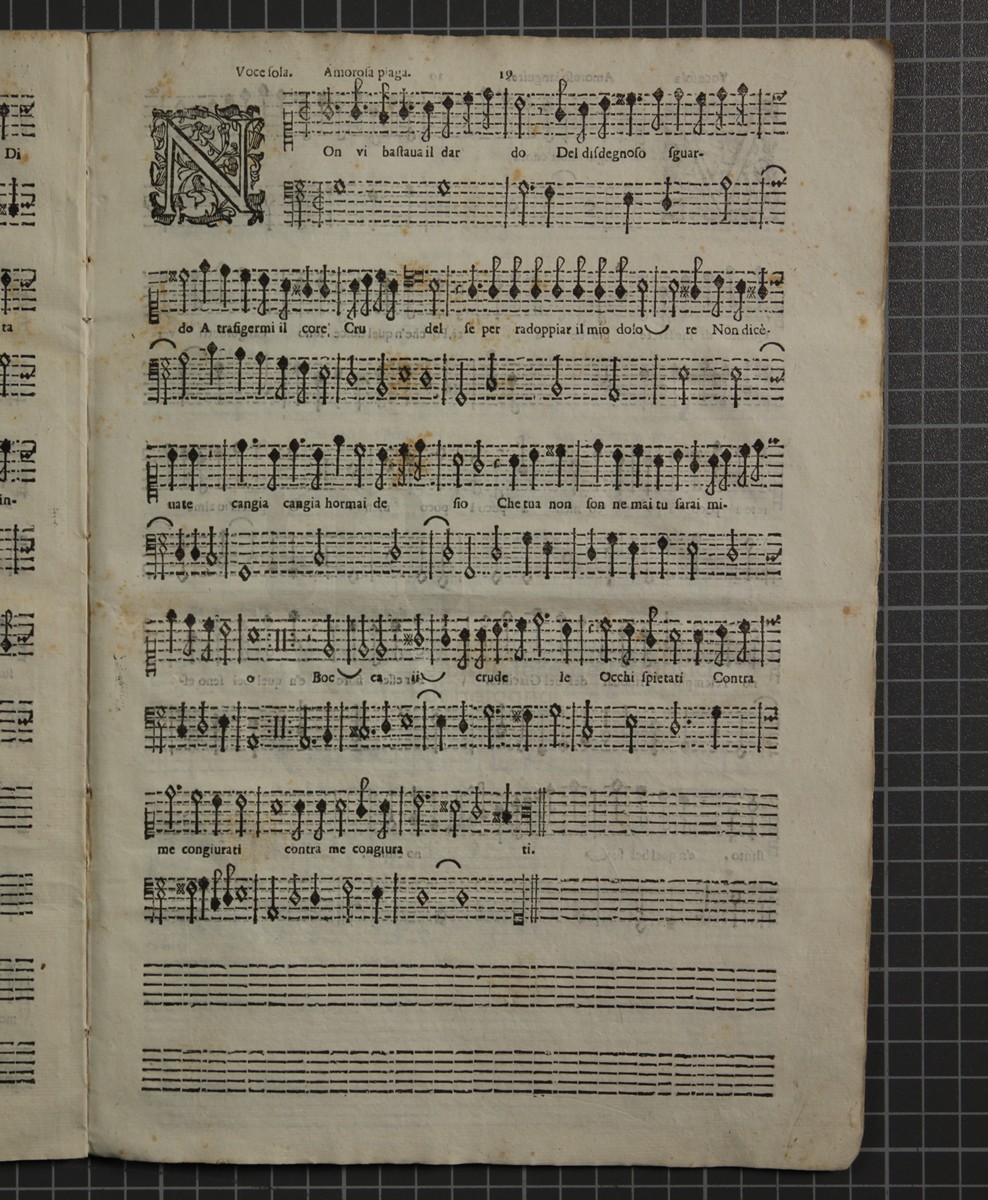 Voce sola. Amorosa piaga. 19
NOn vi bastaua il dar do Del disdegnoso sguar-
do A trafigermi il core; Cru del se per radoppiar il mio dolo re Non dicè-
uate cangia cangia hormai de sio Che tua non son ne mai tu sarai mi-
o Boc ca crude le Occhi spietati Contra
me congiurati contra me congiura ti.
Di
ta
in-